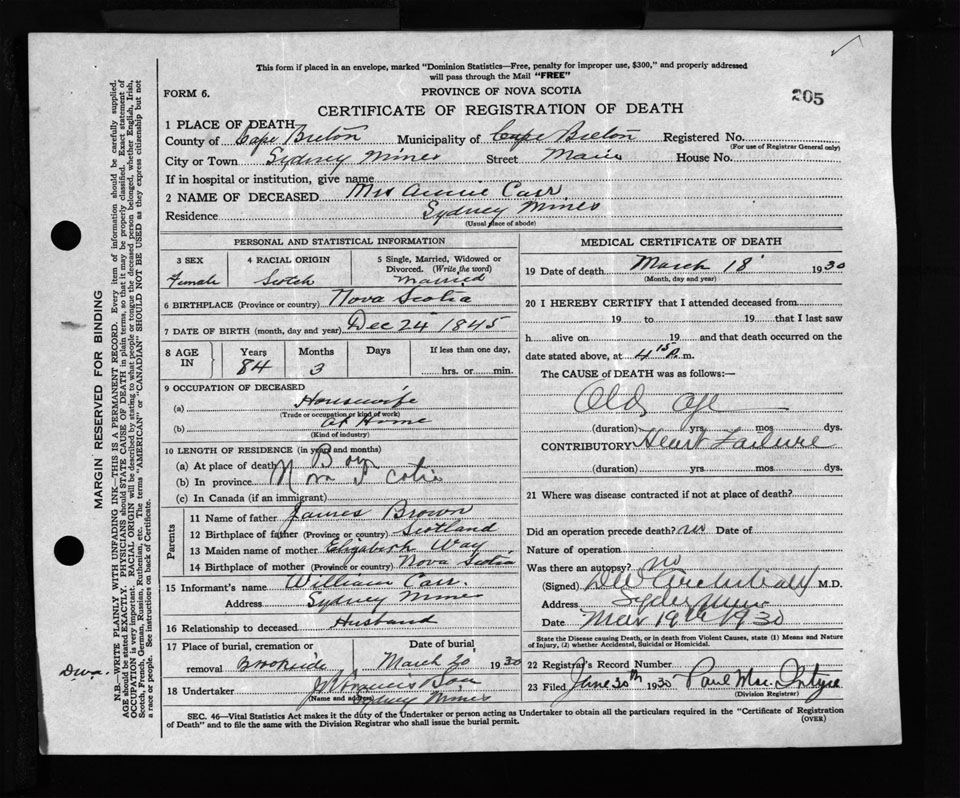 This form if placed in an envelope, marked "Dominion Statistics—Free, penalty for improper use, $300," and properly addressed
will pass through the Mail "FREE"
FORM 6.
PROVINCE OF NOVA SCOTIA
205
CERTIFICATE OF REGISTRATION OF DEATH
1 PLACE OF DEATH
County of Cape Breton Municipality of Cape Breton Registered No.
(For use of Registrar General only)
City or Town Sydney Mines Street Main House No.
If in hospital or institution, give name
2 NAME OF DECEASED Mrs Annie Carr
Residence Sydney Mines
(Usual place of abode)
PERSONAL AND STATISTICAL INFORMATION
3 SEX 4 RACIAL ORIGIN 5 Single, Married, Widowed or
Divorced. (Write the word)
Female Scotch Married
6 BIRTHPLACE (Province or country) Nova Scotia
7 DATE OF BIRTH (month, day and year) Dec 24 1845
8 AGE IN Years Months Days If less than one day,
84 3 hrs. or min.
9 OCCUPATION OF DECEASED
(a) Housewife
(Trade or occupation or kind of work)
(b) At Home
(Kind of industry)
10 LENGTH OF RESIDENCE (in years and months)
(a) At place of death
(b) In province Nova Scotia
(c) In Canada (if an immigrant)
Parents
11 Name of father James Brown
12 Birthplace of father (Province or country) Scotland
13 Maiden name of mother Elizabeth Way
14 Birthplace of mother (Province or country) Nova Scotia
15 Informant's name William Carr.
Address Sydney Mines
16 Relationship to deceased Husband
17 Place of burial, cremation or Date of burial
removal Brookside March 20 1930
18 Undertaker
(Name and address) Sydney Mines
MEDICAL CERTIFICATE OF DEATH
19 Date of death March 18 1930
(Month, day and year)
20 I HEREBY CERTIFY that I attended deceased from
19 to 19 that I last saw
h alive on 19 and that death occurred on the
date stated above, at 4 15 m.
The CAUSE of DEATH was as follows:—
Old Age
(duration) yrs mos dys.
CONTRIBUTORY Heart Failure
(duration) yrs mos dys.
21 Where was disease contracted if not at place of death?
Did an operation precede death? no Date of
Nature of operation
Was there an autopsy? no
(Signed) Archibald M.D.
Address Sydney Mines
Date Mar 19th 1930
State the Disease causing Death, or in death from Violent Causes, state (1) Means and Nature
of Injury, (2) whether Accidental, Suicidal or Homicidal.
22 Registrar's Record Number
23 Filed June 30th 1930 Paul
(Division Registrar)
SEC. 46—Vital Statistics Act makes it the duty of the Undertaker or person acting as Undertaker to obtain all the particulars required in the "Certificate of Registration
of Death" and to file the same with the Division Registrar who shall issue the burial permit.
(OVER)
MARGIN RESERVED FOR BINDING
N.B.—WRITE PLAINLY WITH UNFADING INK—THIS IS A PERMANENT RECORD. Every item of information should be carefully supplied.
AGE should be stated EXACTLY. PHYSICIANS should STATE CAUSE OF DEATH in plain terms, so that it may be properly classified. Exact statement of
OCCUPATION is very important. RACIAL ORIGIN will be described by stating to what people or tongue the deceased person belonged, whether English, Irish,
Scotch, French, German, Russian, Ruthenian, etc. The terms "AMERICAN" or "CANADIAN" SHOULD NOT BE USED as they express citizenship but not
a race or people. See instructions on back of Certificate.